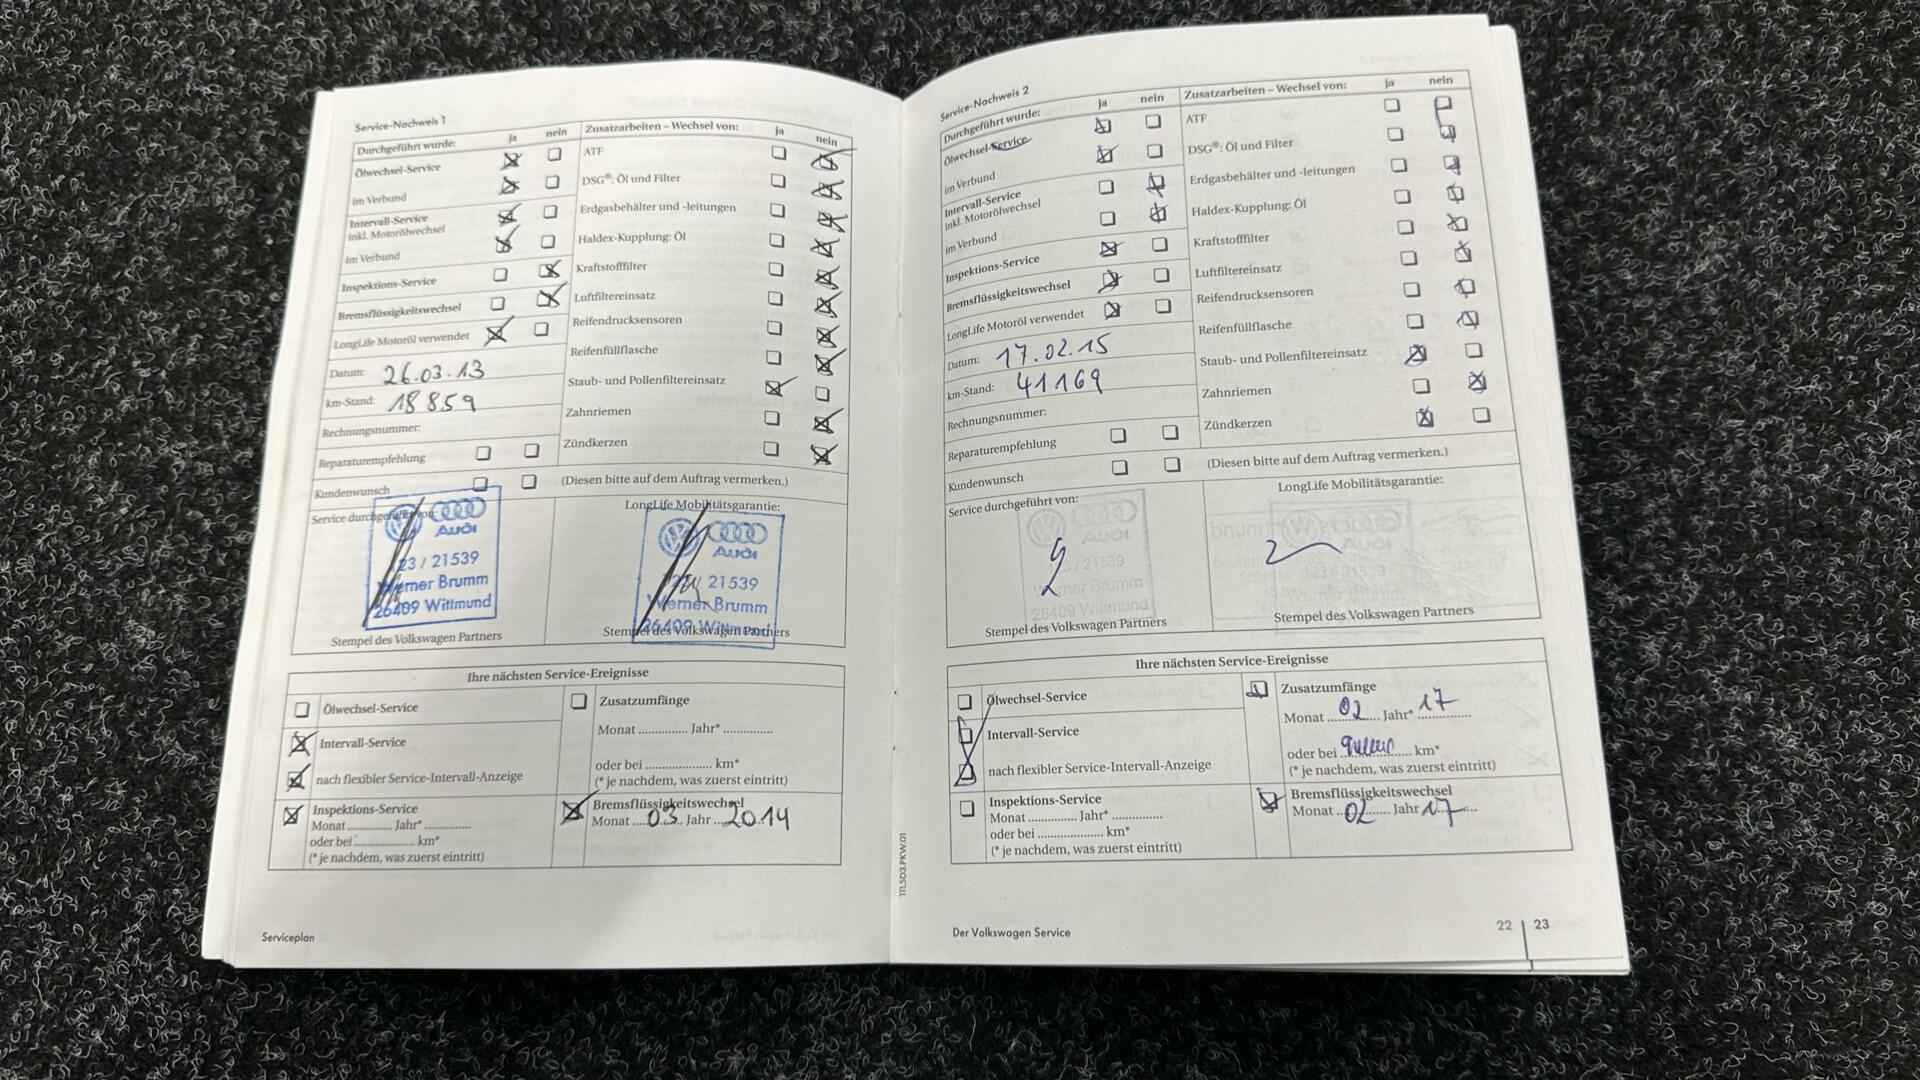 Service-Nachweis 1
Durchgeführt wurde: ja nein
Zusatzarbeiten – Wechsel von: ja nein
Ölwechsel-Service
im Verbund
Intervall-Service
inkl. Motorölwechsel
im Verbund
Inspektions-Service
Bremsflüssigkeitswechsel
LongLife Motoröl verwendet
Datum: 26.03.13
km-Stand: 18859
Rechnungsnummer:
Reparaturempfehlung
Kundenwunsch
ATF
DSG®: Öl und Filter
Erdgasbehälter und -leitungen
Haldex-Kupplung: Öl
Kraftstofffilter
Luftfiltereinsatz
Reifendrucksensoren
Reifenfüllflasche
Staub- und Pollenfiltereinsatz
Zahnriemen
Zündkerzen
(Diesen bitte auf dem Auftrag vermerken.)
Service durchgeführt von:
AUDI
23 / 21539
Werner Brumm
26409 Wittmund
Stempel des Volkswagen Partners
LongLife Mobilitätsgarantie:
AUDI
21539
Werner Brumm
26409 Wittmund
Stempel des Volkswagen Partners
Ihre nächsten Service-Ereignisse
Ölwechsel-Service
Intervall-Service
nach flexibler Service-Intervall-Anzeige
Inspektions-Service
Monat ............ Jahr* ............
oder bei ............ km*
(* je nachdem, was zuerst eintritt)
Zusatzumfänge
Monat ............ Jahr* ............
oder bei ............ km*
(* je nachdem, was zuerst eintritt)
Bremsflüssigkeitswechsel
Monat 03 Jahr 2014
Serviceplan
111.5D3.PKW.01
Service-Nachweis 2
Durchgeführt wurde: ja nein
Zusatzarbeiten – Wechsel von: ja nein
Ölwechsel-Service
im Verbund
Intervall-Service
inkl. Motorölwechsel
im Verbund
Inspektions-Service
Bremsflüssigkeitswechsel
LongLife Motoröl verwendet
Datum: 17.02.15
km-Stand: 41169
Rechnungsnummer:
Reparaturempfehlung
Kundenwunsch
ATF
DSG®: Öl und Filter
Erdgasbehälter und -leitungen
Haldex-Kupplung: Öl
Kraftstofffilter
Luftfiltereinsatz
Reifendrucksensoren
Reifenfüllflasche
Staub- und Pollenfiltereinsatz
Zahnriemen
Zündkerzen
(Diesen bitte auf dem Auftrag vermerken.)
Service durchgeführt von:
AUDI
/ 21539
Werner Brumm
26409 Wittmund
Stempel des Volkswagen Partners
LongLife Mobilitätsgarantie:
Stempel des Volkswagen Partners
Ihre nächsten Service-Ereignisse
Ölwechsel-Service
Intervall-Service
nach flexibler Service-Intervall-Anzeige
Inspektions-Service
Monat ............ Jahr* ............
oder bei ............ km*
(* je nachdem, was zuerst eintritt)
Zusatzumfänge
Monat 02 Jahr* 17
oder bei ............ km*
(* je nachdem, was zuerst eintritt)
Bremsflüssigkeitswechsel
Monat 02 Jahr 17
Der Volkswagen Service
22 | 23